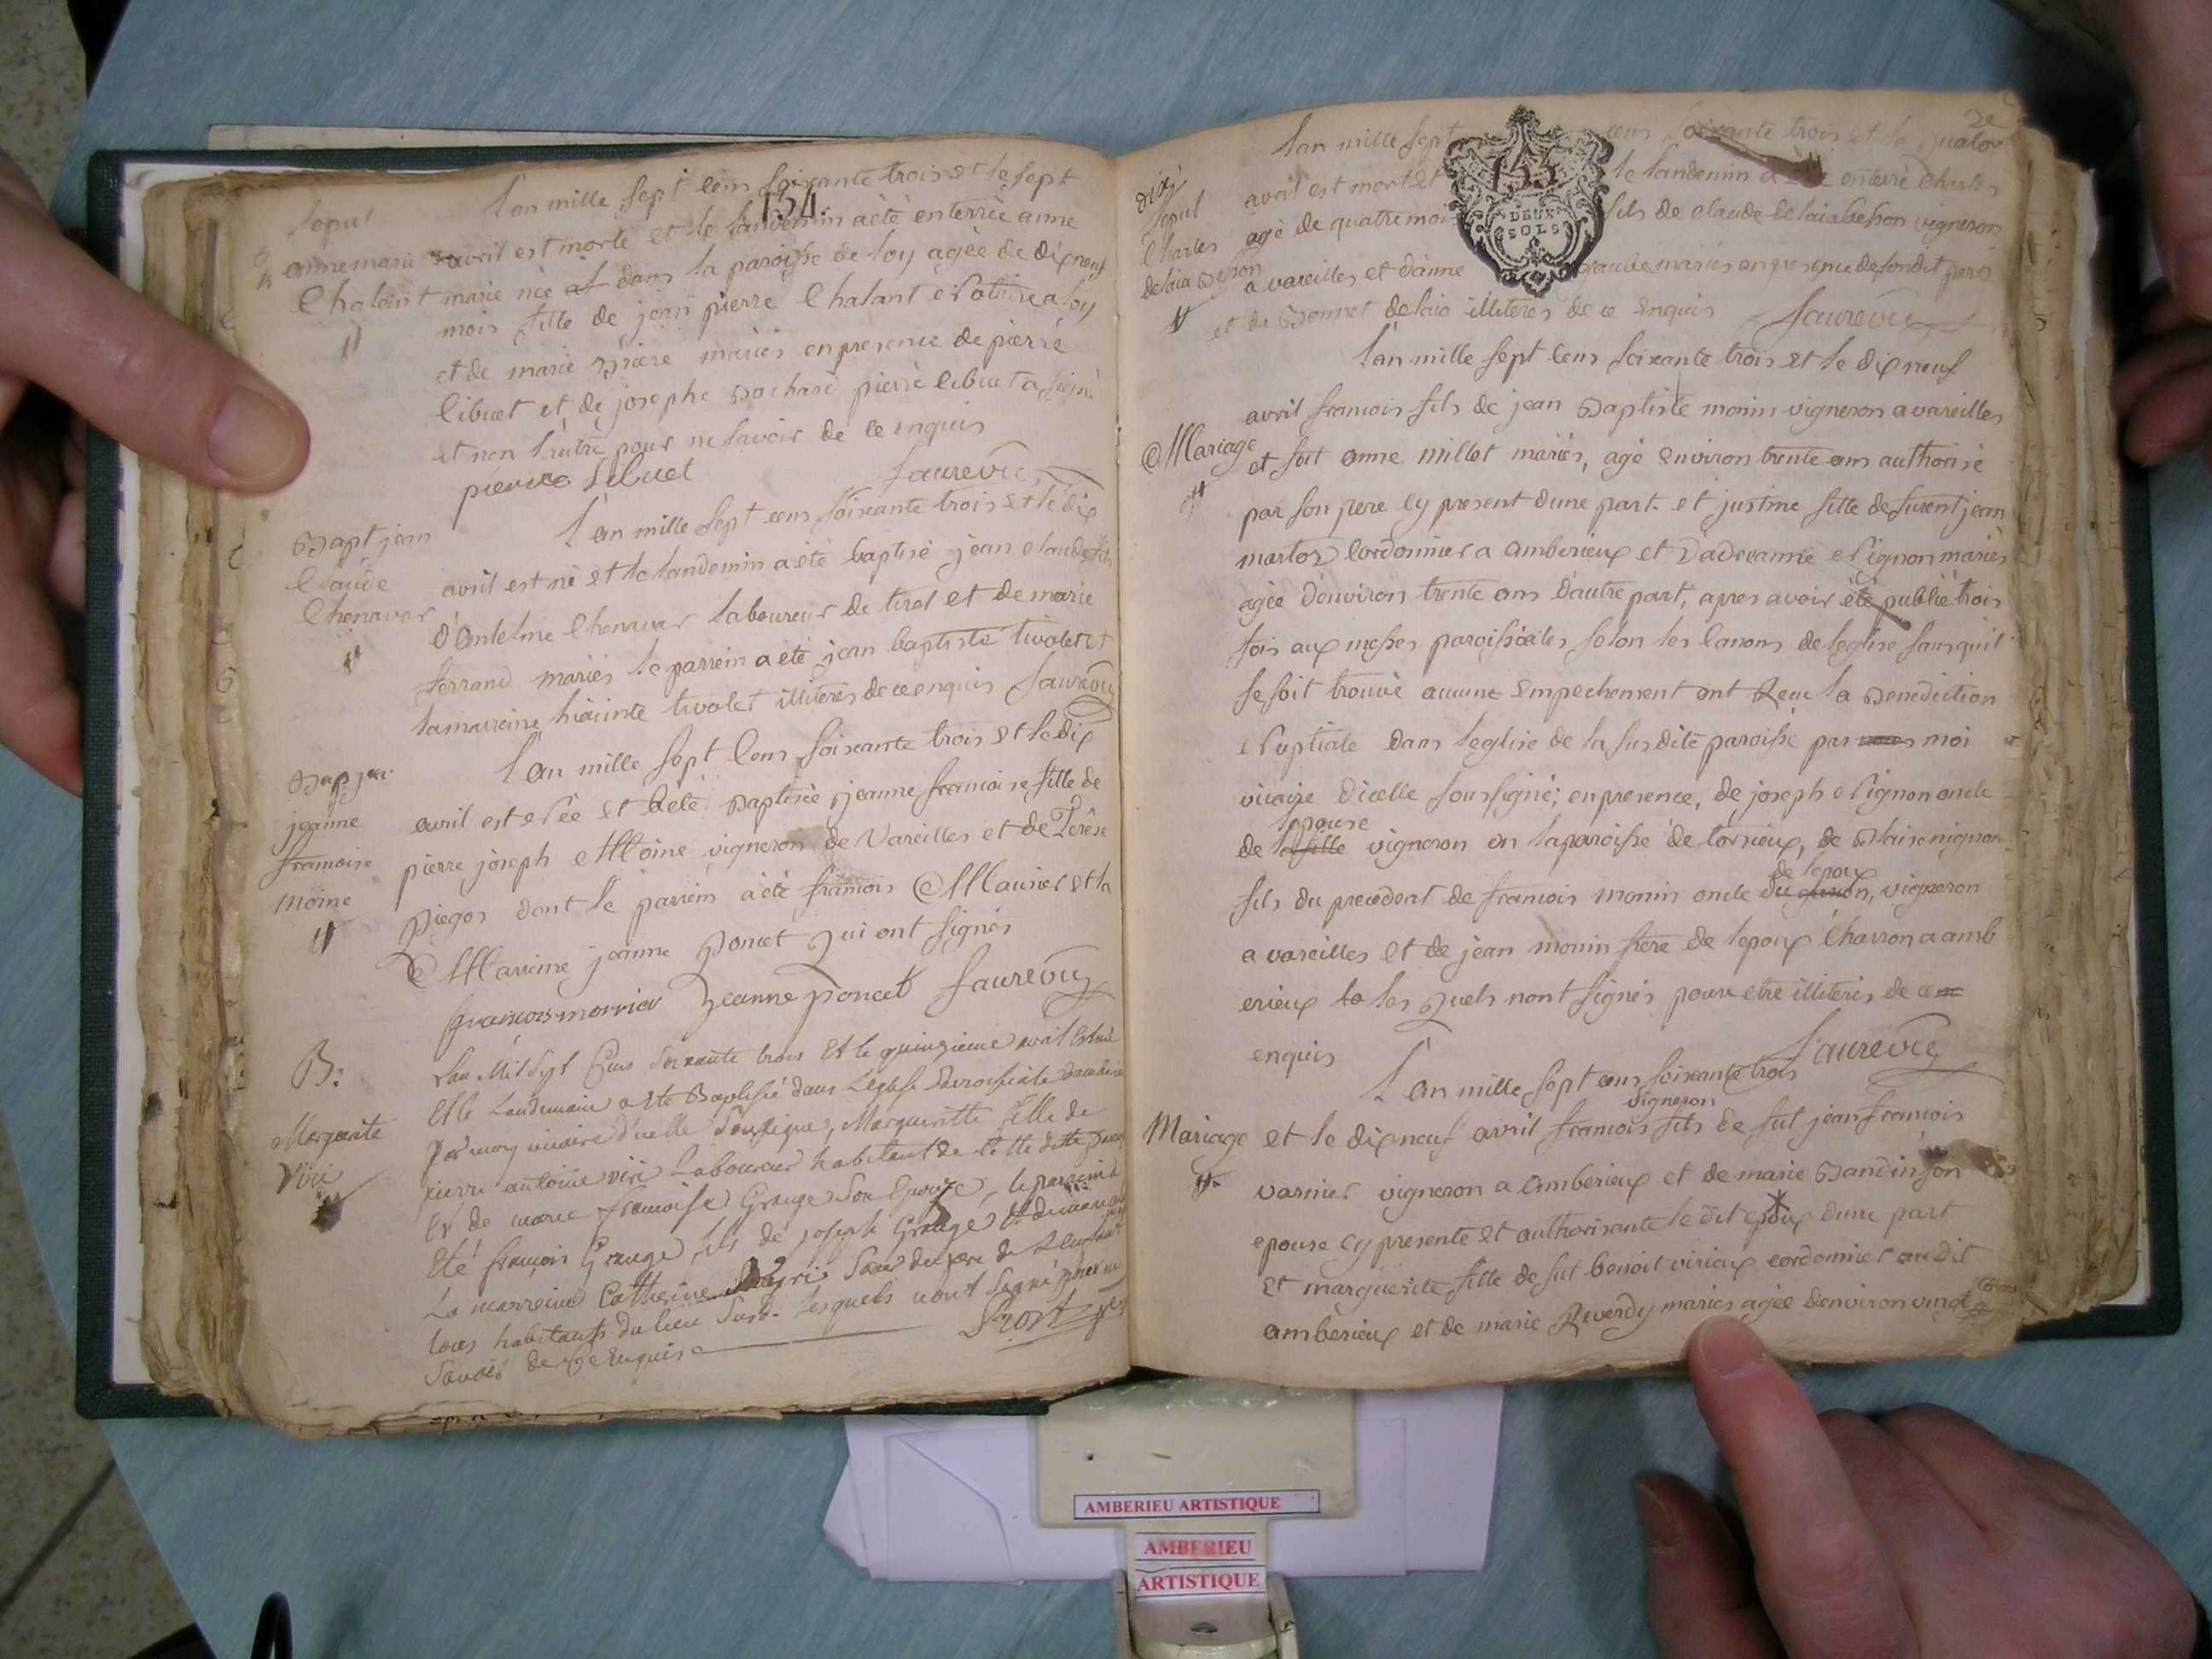 154.
Sepul
anne marie
Chalant
L'an mille sept cens soixante trois et le sept
avril est morte et le landemin a ètè enterrèe anne
marie nèe dans la paroisse de loy agèe de dix neuf
mois fille de jean pierre Chalant a loy
et de marie mariès en presence de pierrè
libuet et de josephe Bochard pierrè libuet a signè
et non l'autre pour ne savoir de ce enquis
pierre Libuet faurevic
Bapt jean
Claude
Chenavar
L'an mille sept cens soixante trois et le dix
avril est nè et le landemin a ètè baptisè jean claude fils
d'Antelme Chenavar laboureur de tiret et de marie
ferrand mariès le parrein a etè jean baptiste tivolet et
la marreine hiacinte tivolet illiterès de ce enquis faurevic
Bap
jeanne
francoise
Moine
L'an mille sept Cens soixante trois et le dix
avril est Nèe et a ètè Baptisèe jeanne francoise fille de
pierre joseph Moine vigneron de Vareilles et de Terèse
Piegos dont le parrein à ètè francois Maurier et la
Marreine jeanne Poncet Qui ont signès
francois morrier Jeanne poncet faurevic
B:
Marguerite
Viri
L'an Mil Sept Cens soixante trois Et le quinzieme avril Est née
Et le Landemain a eté Baptisée dans L'eglise Parroissiale
par moy vicaire d'icelle Soussigné, Margueritte fille de
pierre antoine viri Laboureur habitant de Cette ditte
Et de marie francoise Grange Son Epouze, le parrein a
Eté françois Grange fils de joseph Grange
La marreine Catherine Soeur du pere de L'enfant
tous habitants du lieu Susd. Lesquels n'ont signé pour ne
Savoir de Ce Enquis Prost
155
DEUX
SOLS
Sepul
Charles
delaia Besson
L'an mille sept cens soixante trois et le Quator
avril est mort et le landemin a ètè enterrè Charles
agè de quatre mois fils de claude delaia besson vigneron
a vareilles et d'anne mariès en presence de son dit pere
et de Bonnet delaia illiterès de ce Enquis faurevic
Mariage
L'an mille sept cens soixante trois et le dix neuf
avril francois fils de jean Baptiste monin vigneron a vareilles
et fut anne millet mariès, agè environ trente ans authorisè
par son pere cy present d'une part. et justine fille de furent jean
martos Cordonnier a amberieux et d'adreanne Nignon mariès
agèe d'environ trente ans d'autre part, apres avoir ètè publiè trois
fois aux messes paroissiales selon les Canons de leglise sans quil
se soit trouvè aucune Empechement ont Reçu la Benediction
Nuptiale dans leglise de la susdite paroisse par moi
vicaire d'icelle soussignè; en presence, de joseph Nignon oncle
de lepouse vigneron en la paroisse de torcieux, de Blaise nignon
fils du precedent de francois monin oncle de lepoux, vigneron
a vareilles et de jean monin frere de lepoux Charron a amb
erieux les Quels n'ont signès pour etre illiterès de ce
enquis faurevic
Mariage
L'an mille sept cens soixante trois
et le dix neuf avril francois vigneron fils de fut jean francois
varnier vigneron a Amberieux et de marie Bandin son
epouse cy presente et authorisante le dit epoux d'une part
et marguerite fille de fut benoit virieux cordonnier au dit
amberieux et de marie Reverdy mariès agèe d'environ vingt
AMBERIEU ARTISTIQUE
AMBERIEU
ARTISTIQUE